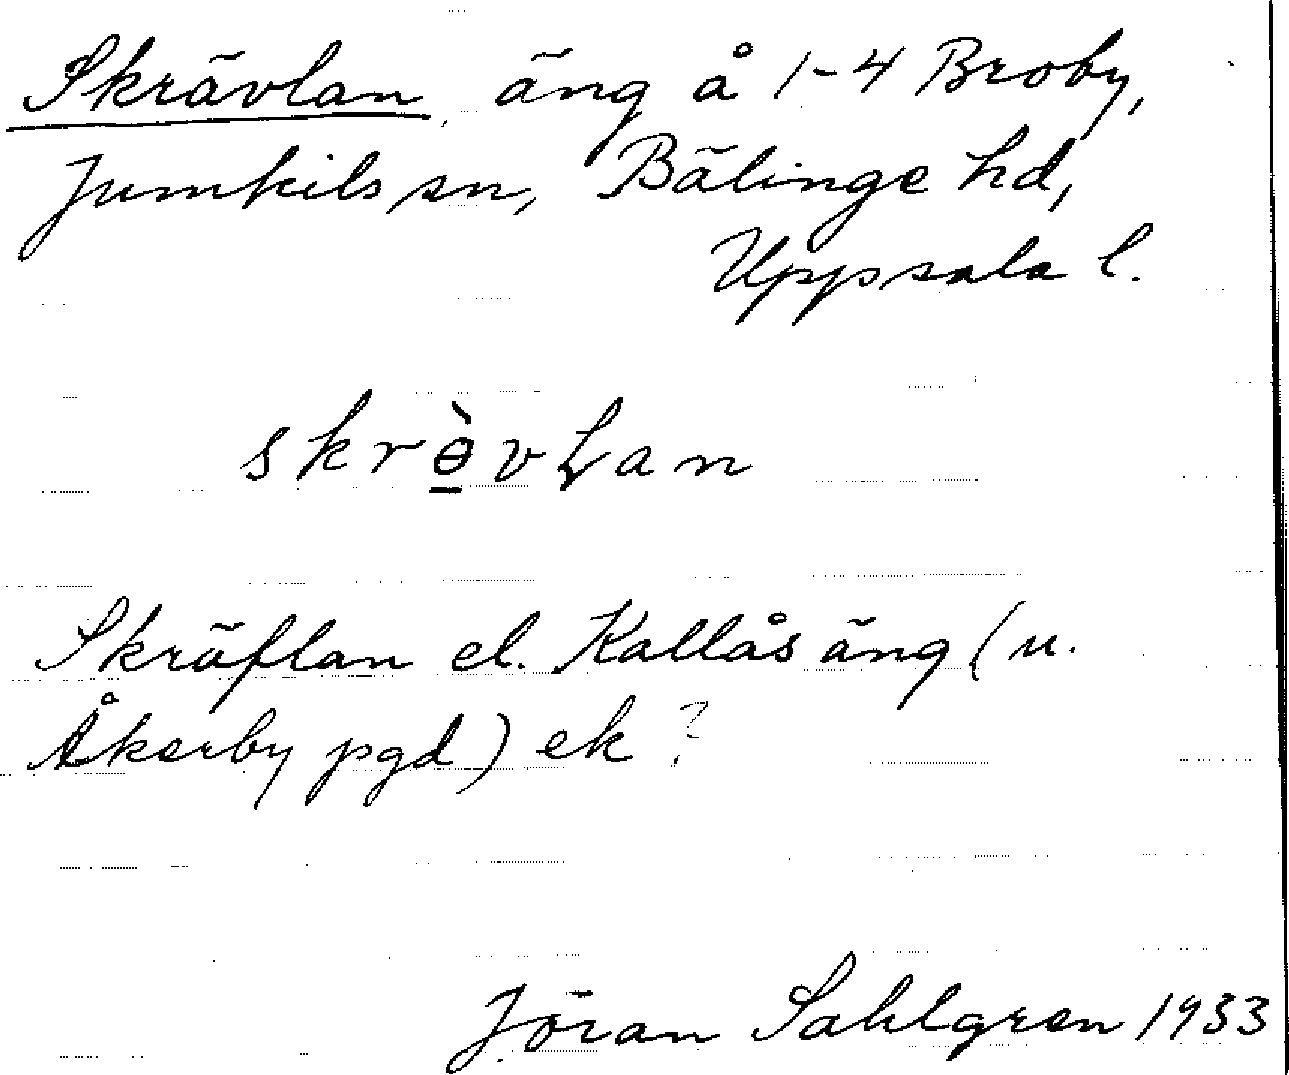 Skrävlan, äng å 1-4 Broby,
Jumkils sn, Bälinge hd,
Uppsala l.
skrɵ̱̀vɬan
Skräflan el. Kallås äng (u.
Åkerby pgd) ek ?
Jöran Sahlgren 1933